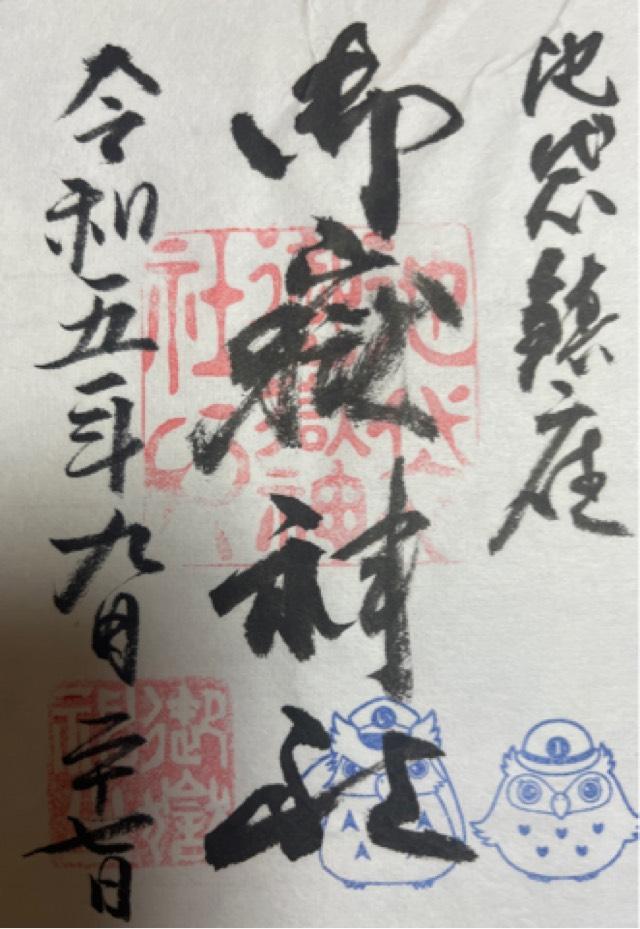 池袋鎮座
御嶽神社
令和五年九月二十七日
池袋
御嶽神
社
御嶽